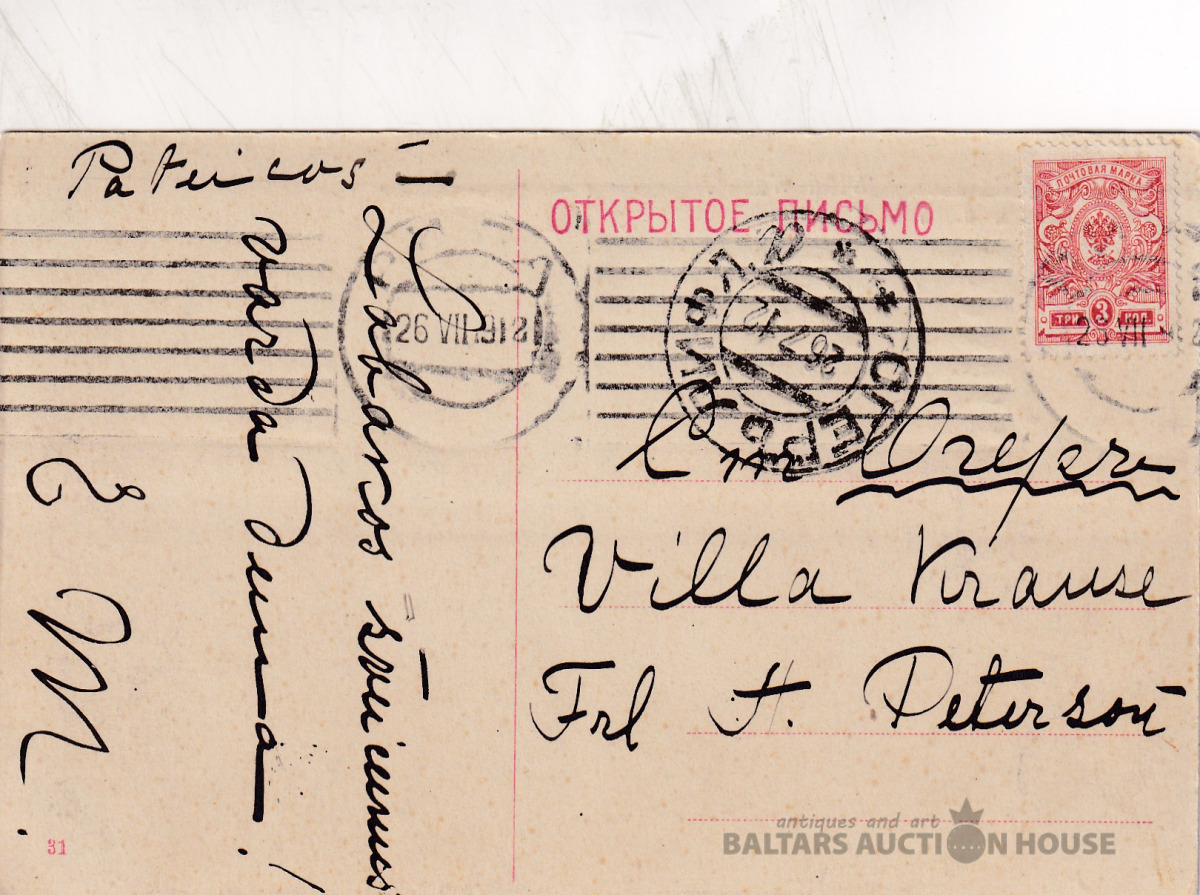 Pateicos
Labākos sveicienus
varda dienā!
E M.
ОТКРЫТОЕ ПИСЬМО
ПОЧТОВАЯ МАРКА
ТРИ 3 КОП
26 VII 1912
26 7 12
ОГЕРЪ ЛИФЛ.
Огеръ
Villa Krause
Frl H. Peterson
31
antiques and art
BALTARS AUCTION HOUSE